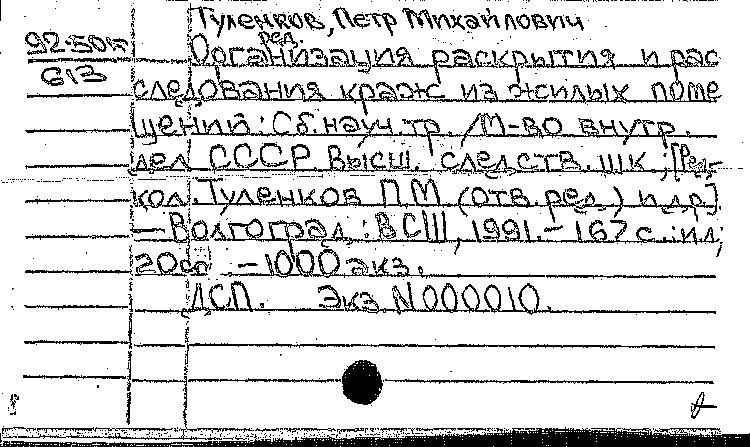 Туленков, Петр Михайлович
ред.
92-50
613
Организация раскрытия и рас
следования краж из жилых поме
щений: Сб. науч. тр. /М-во внутр.
дел СССР. Высш. следств. шк.; [Ред.
кол. Туленков П.М (отв. ред.) и др.]
— Волгоград: ВСШ, 1991. - 167 с.: ил;
20см - 1000 экз.
ДСП. Экз N000010.